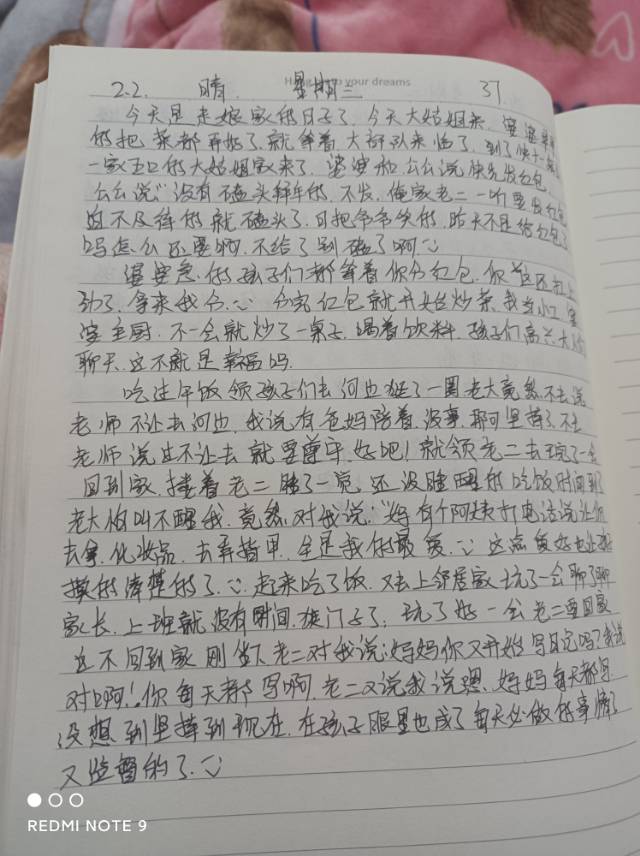 your dreams
2.2. 晴. 星期三 37.
今天是走娘家的日子了. 今天大姑姐来. 婆婆早早
的把菜都弄好了. 就等着大部队来临了. 到了快十一点
一家五口的大姑姐家来了. 婆婆和么么说快先发红包.
么么说:"没有磕头拜年的. 不发. 俺家老二一听要发红包
迫不及待的就磕头了. 可把爷爷笑的. 昨天不是给红包了
吗怎么还要啊. 不给了别磕了啊
婆婆急的孩子们都等着你分红包. 你
劲了. 拿来我分. 分完红包就开始炒菜. 我当小工 婆
婆主厨. 不一会就炒了一桌子. 喝着饮料. 孩子们高兴大人
聊天. 这不就是幸福吗.
吃过午饭领孩子们去河边逛了一圈老大竟然不去说
老师不让去河边. 我说有爸妈陪着. 没事. 那可坚持了不去
老师说过不让去就要遵守. 好吧! 就领老二去玩了一会
回到家. 搂着老二睡了一觉. 还没睡醒的吃饭时间到
老大怕叫不醒我. 竟然对我说:"妈有个阿姨打电话说让你
去拿化妆品. 去弄指甲. 全是我的最爱. 这点爱好也让我
摸的清楚的了. 起来吃了饭. 又去上邻居家坑了一会聊了聊
家长. 上班就没有时间. 旋门子了. 玩了好一会老二要回家
这不回到家刚坐下老二对我说:妈妈你又开始写日记吗? 我说
对啊! 你每天都写啊. 老二又说我说嗯. 妈妈每天都写
没想到坚持到现在. 在孩子眼里也成了每天必做的事情了
又监督的了.
REDMI NOTE 9